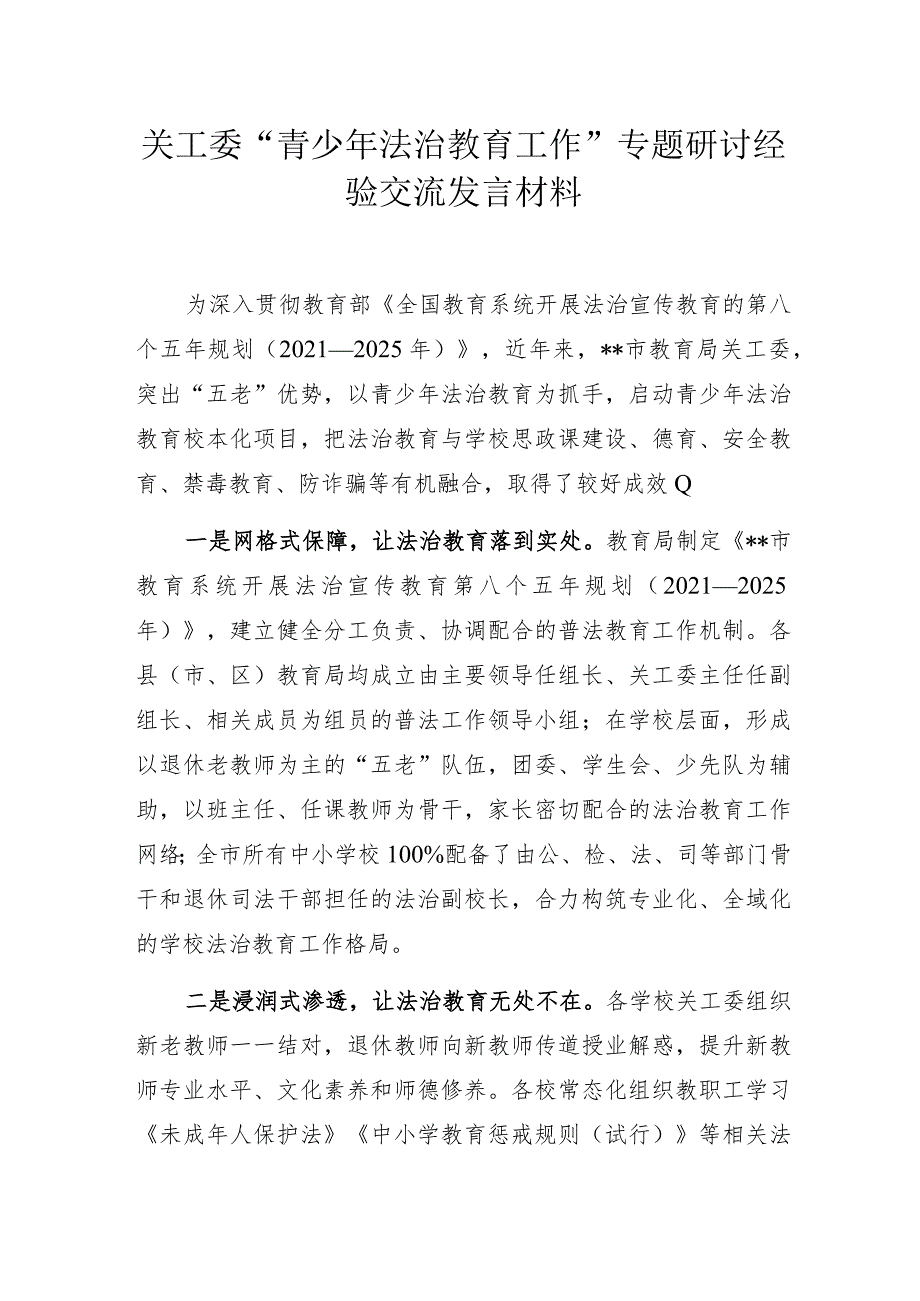 关工委“青少年法治教育工作”专题研讨经
验交流发言材料
为深入贯彻教育部《全国教育系统开展法治宣传教育的第八
个五年规划（2021—2025 年）》，近年来，**市教育局关工委，
突出“五老”优势，以青少年法治教育为抓手，启动青少年法治
教育校本化项目，把法治教育与学校思政课建设、德育、安全教
育、禁毒教育、防诈骗等有机融合，取得了较好成效 Q
一是网格式保障，让法治教育落到实处。教育局制定《**市
教育系统开展法治宣传教育第八个五年规划（2021—2025
年）》，建立健全分工负责、协调配合的普法教育工作机制。各
县（市、区）教育局均成立由主要领导任组长、关工委主任任副
组长、相关成员为组员的普法工作领导小组；在学校层面，形成
以退休老教师为主的“五老”队伍，团委、学生会、少先队为辅
助，以班主任、任课教师为骨干，家长密切配合的法治教育工作
网络；全市所有中小学校 100%配备了由公、检、法、司等部门骨
干和退休司法干部担任的法治副校长，合力构筑专业化、全域化
的学校法治教育工作格局。
二是浸润式渗透，让法治教育无处不在。各学校关工委组织
新老教师一一结对，退休教师向新教师传道授业解惑，提升新教
师专业水平、文化素养和师德修养。各校常态化组织教职工学习
《未成年人保护法》《中小学教育惩戒规则（试行）》等相关法